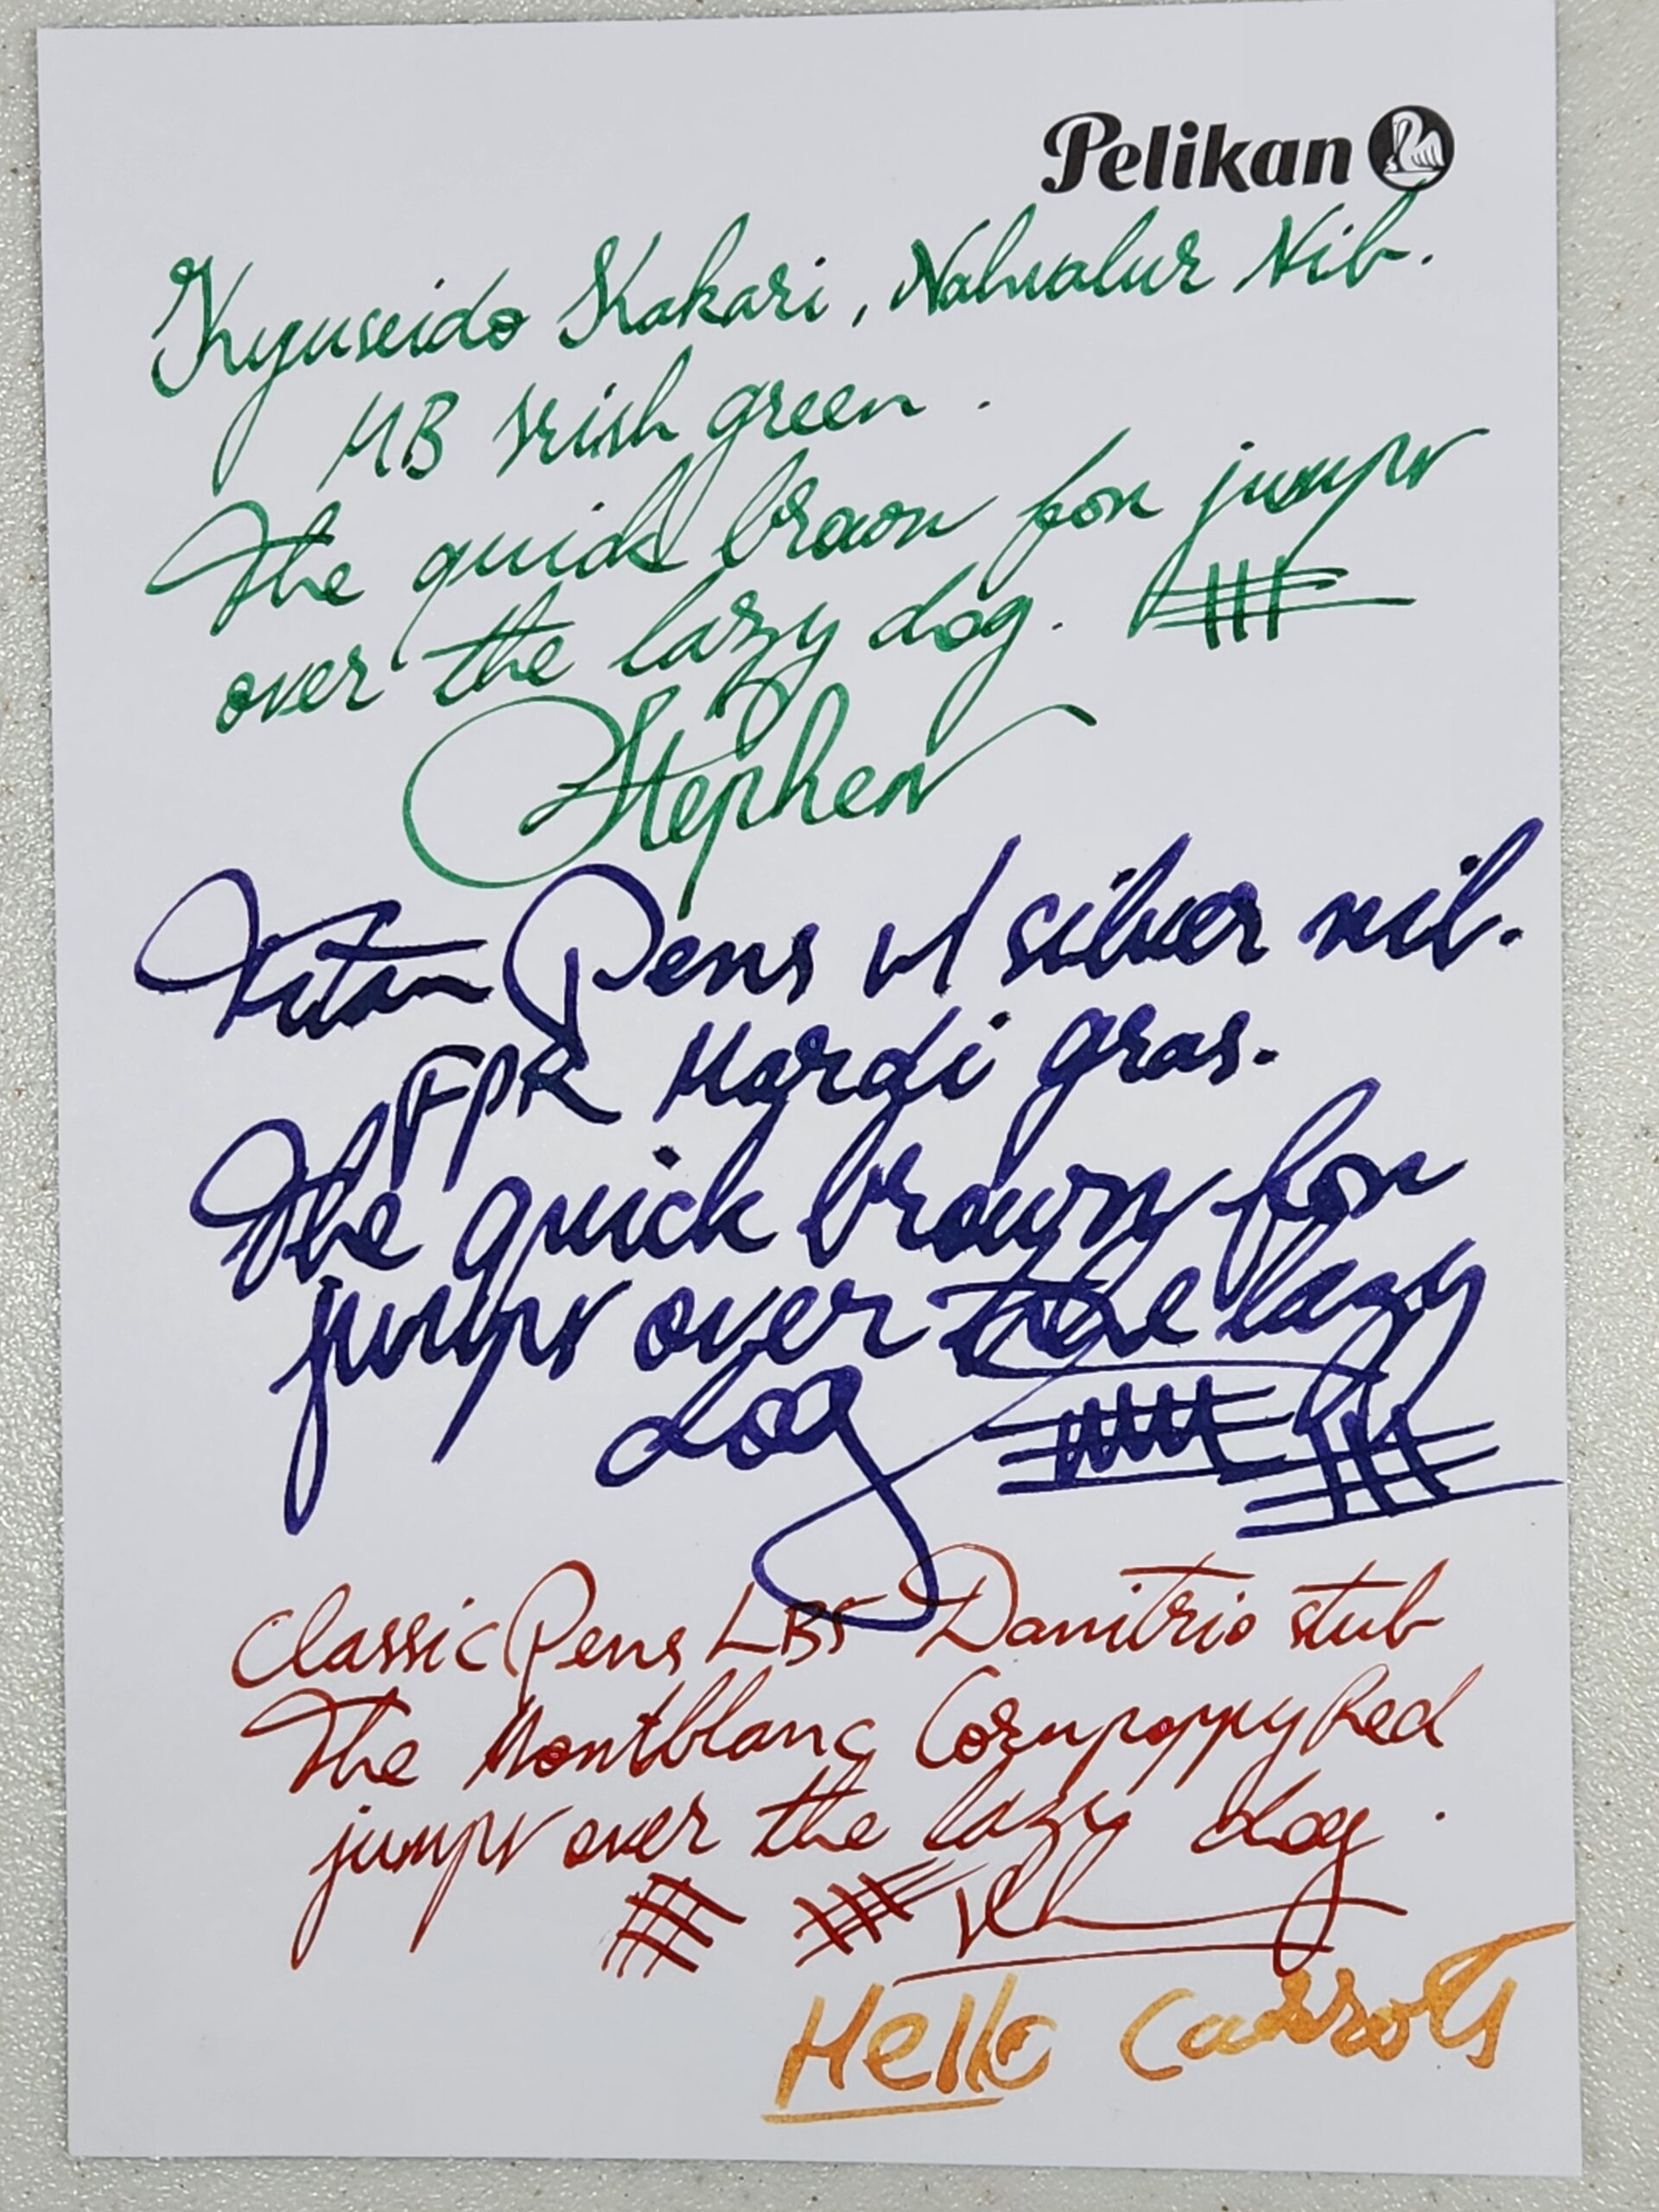 Pelikan
Kyuseido Kakari, Nahvalur Nib.
MB Irish green.
The quick brown fox jumps
over the lazy dog.
Stephen
Titan Pens w/ silver nib.
FPR Mardi gras.
The quick brown fox
jumps over the lazy
dog
Classic Pens LB5 Danitrio stub
The Montblanc Cornpoppy Red
jumps over the lazy dog.
Hello Carrots